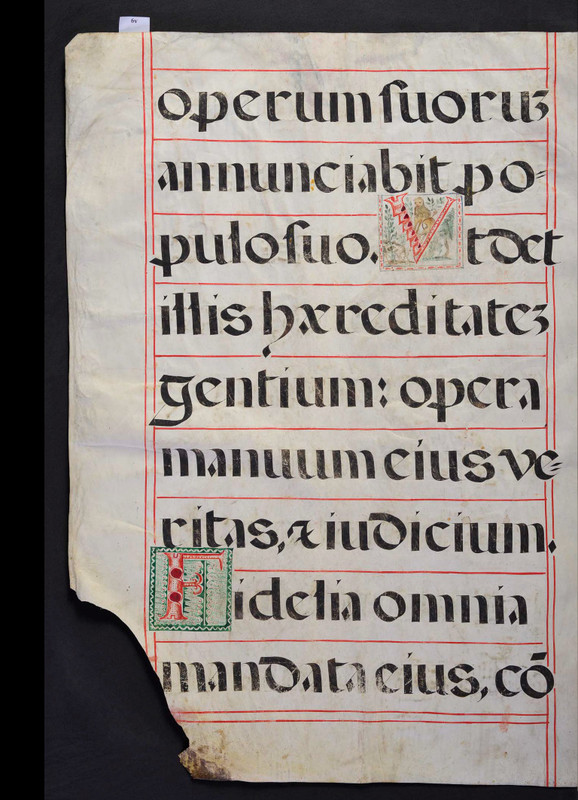 6v
operum suoruʒ
annunciabit po-
pulo suo. Vt det
illis hæreditateʒ
gentium: opera
manuum eius ve-
ritas, & iudicium.
Fidelia omnia
mandata eius, cõ